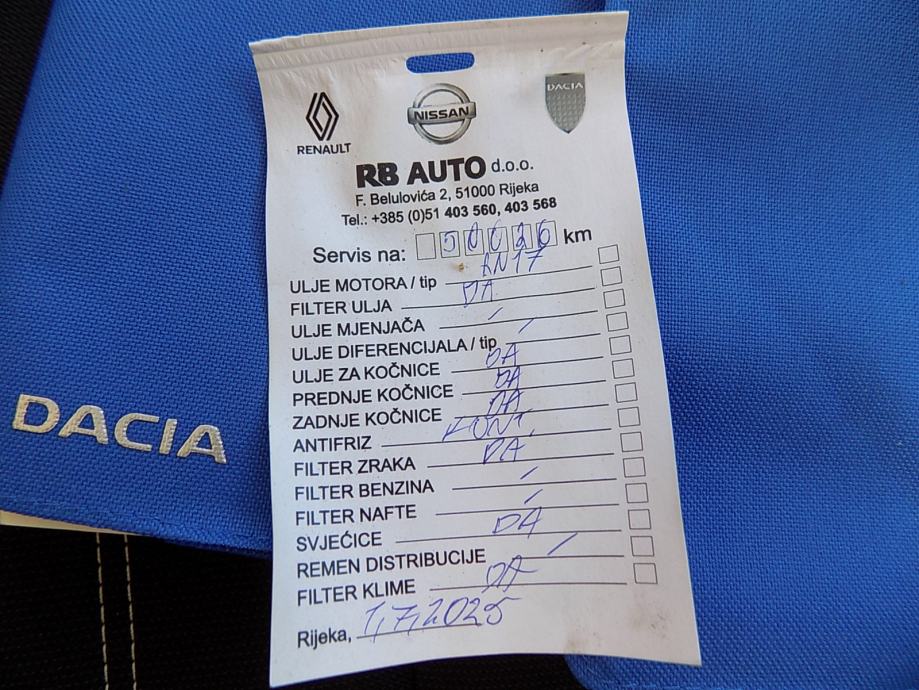 RENAULT NISSAN DACIA
RB AUTO d.o.o.
F. Belulovića 2, 51000 Rijeka
Tel.: +385 (0)51 403 560, 403 568
Servis na: 50026 km
ULJE MOTORA / tip RN17
FILTER ULJA DA
ULJE MJENJAČA /
ULJE DIFERENCIJALA / tip /
ULJE ZA KOČNICE DA
PREDNJE KOČNICE DA
ZADNJE KOČNICE DA
ANTIFRIZ KONT.
FILTER ZRAKA DA
FILTER BENZINA /
FILTER NAFTE /
SVJEĆICE DA
REMEN DISTRIBUCIJE /
FILTER KLIME DA
Rijeka, 1,7,2025
DACIA